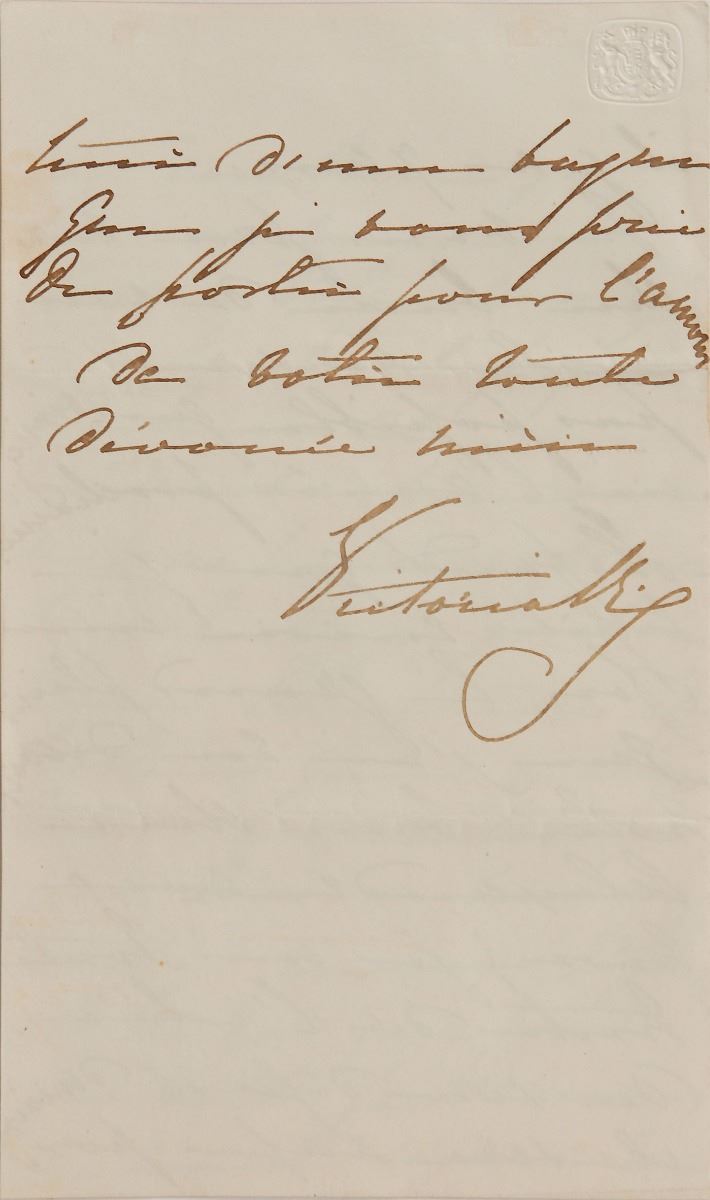 d'une bague
que je vous prie
de porter pour l'amour
de votre toute
dévouée
Victoria R